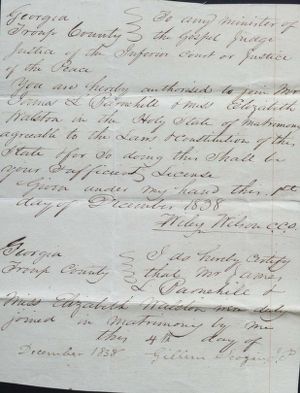 Georgia } To any minister of
Troup County } the Gospel Judge
Justice of the Inferior Court or Justice
of the Peace
You are hereby authorised to join Mr
L Parnehill & Miss Elizabeth
Walston in the Holy State of Matrimony
agreeable to the Laws & Constitution of this
State & for So doing this Shall be
your Sufficient License
Given under my hand this 1st
day of December 1838
Wiley Wilson CCO
Georgia } I do hereby Certify
Troup County } that Mr James
L Parnehill &
Miss Elizabeth Walston were duly
joined in matrimony by me
this 4th day of
December 1838